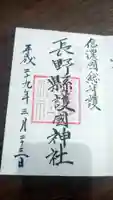 信濃國総守護
長野縣護國神社
平成二十九年三月二十三日